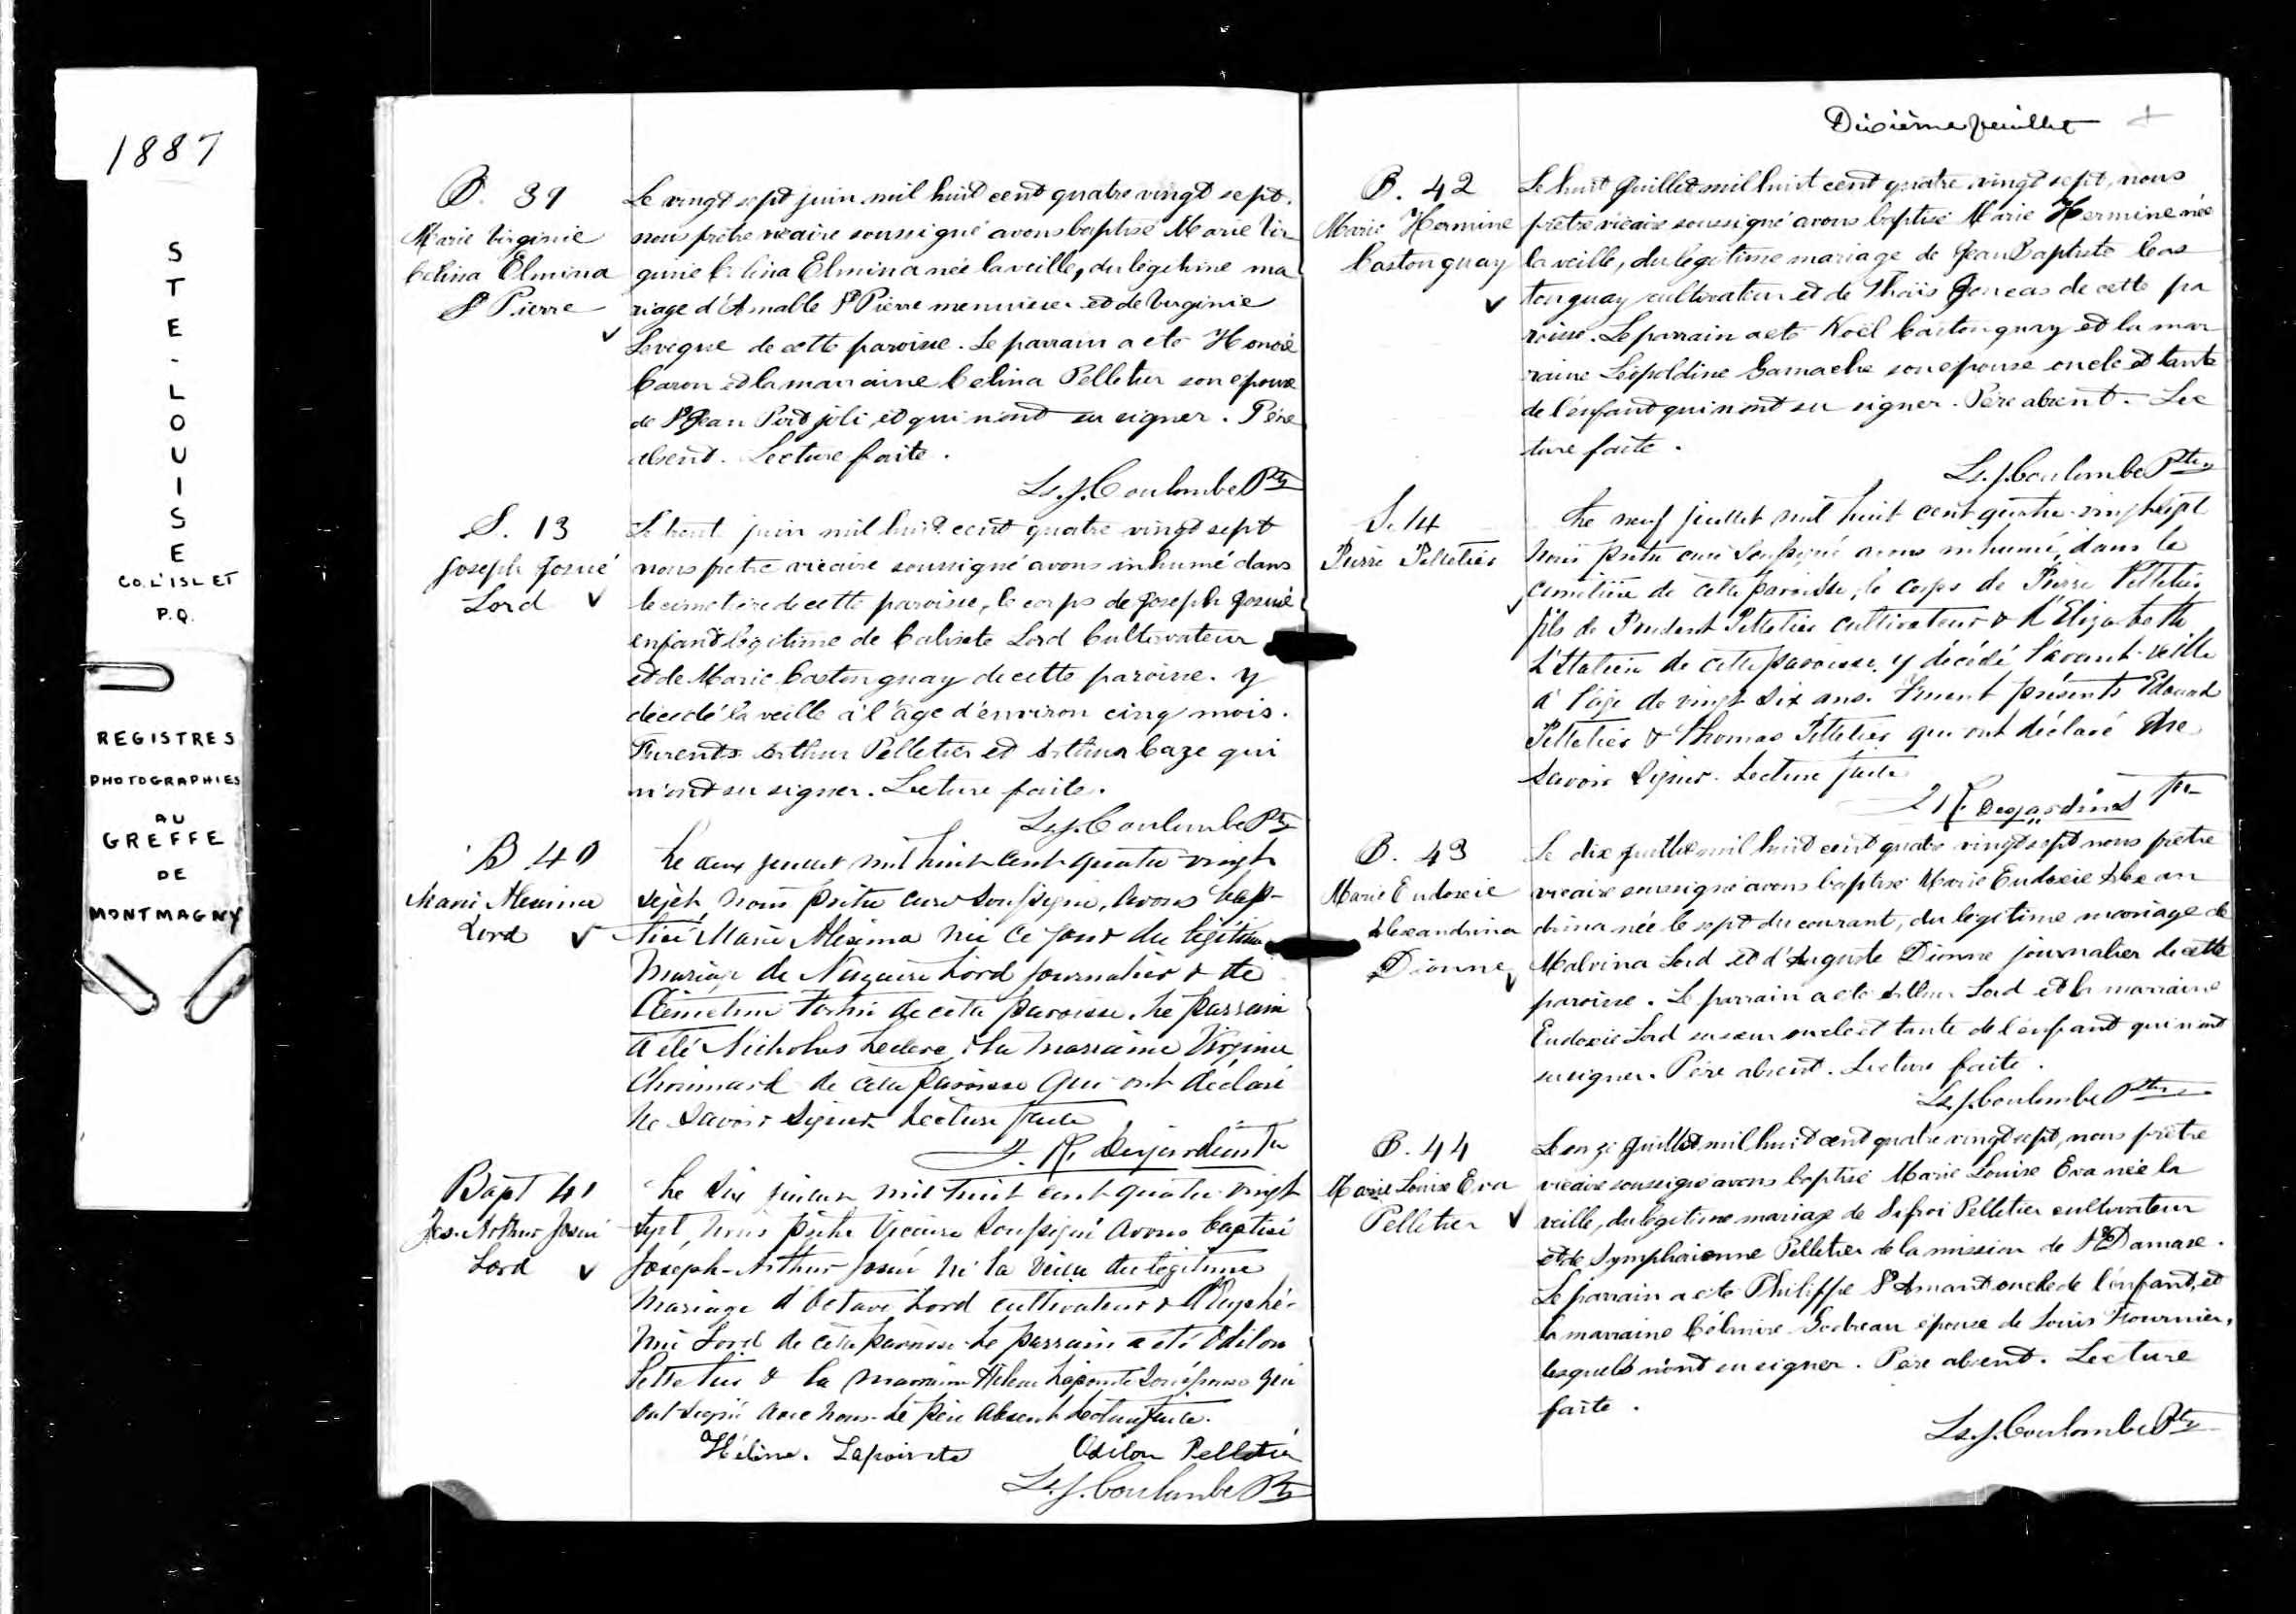 1887
STE-LOUISE
CO. L'ISLET
P.Q.
REGISTRES
PHOTOGRAPHIES
AU
GREFFE
DE
MONTMAGNY
B. 39
Marie Virginie
Celina Elmina
St Pierre
Le vingt sept juin mil huit cent quatre vingt sept.
nous prêtre vicaire soussigné avons baptisé Marie Vir
ginie Celina Elmina née la veille, du légitime ma
riage d'Amable St Pierre menuisier et de Virginie
Leveque de cette paroisse. Le parrain a ete Honoré
Caron et la marraine Celina Pelletier son epouse
de St Jean Port joli, et qui n'ont su signer. Père
absent. Lecture faite.
Ls. J. Coulombe Ptre
S. 13
Joseph Josué
Lord
Le trent juin mil huit cent quatre vingt sept
nous pretre vicaire soussigné avons inhumé dans
le cimetiere de cette paroisse, le corps de Joseph Josué
enfant légitime de Calixte Lord Cultivateur
et de Marie Castonguay de cette paroisse. y
décedé la veille à l'âge d'environ cinq mois.
Furents Arthur Pelletier et Arthur Caze qui
n'ont su signer. Lecture faite.
Ls. J. Coulombe Ptre
B 40
Marie Alexina
Lord
Le deux juillet mil huit cent quatre-vingt
sept nous prêtre curé soussigné, avons bap-
tisé Marie Alexina née ce jour du légitime
mariage de Nazaire Lord journalier & de
Clémentine Fortin de cette paroisse. Le parrain
a été Nicholas Leclerc, & la marraine Virginie
Chouinard de cette paroisse qui ont déclaré
ne savoir signer. Lecture faite
Desjardins Ptre
Bapt 41
Jos. Arthur Josué
Lord
Le six juillet mil huit cent quatre-vingt
sept, nous prêtre vicaire soussigné avons baptisé
Joseph-Arthur-Josué né la veille du légitime
mariage d'Octave Lord cultivateur & d'Euphé-
mie Lord de cette paroisse. Le parrain a été Odilon
Pelletier & la marraine Hélène Lapointe son épouse qui
ont signé avec nous. Le père absent. Lecture faite.
Hélène. Lapointe Odilon Pelletier
Ls. J. Coulombe Ptre
Dixième feuillet
B. 42
Marie Hermine
Castonguay
Le huit Juillet mil huit cent quatre vingt sept, nous
prêtre vicaire soussigné avons baptisé Marie Hermine née
la veille, du légitime mariage de Jean Baptiste Cas
tonguay cultivateur et de Thaïs Joncas de cette pa
roisse. Le parrain a ete Noël Castonguay et la mar
raine Léopoldine Gamache son epouse oncle et tante
de l'enfant qui n'ont su signer. Père absent. Lec
ture faite.
Ls. J. Coulombe Ptre
S. 14
Pierre Pelletier
Le neuf juillet mil huit cent quatre-vingt-sept
nous prêtre curé soussigné avons inhumé, dans le
cimetière de cette paroisse, le corps de Pierre Pelletier
fils de Prudent Pelletier cultivateur & d'Elizabeth
L'Italien de cette paroisse, y décédé l'avant-veille
à l'âge de vingt six ans. Furent présents Edouard
Pelletier & Thomas Pelletier qui ont déclaré ne
savoir signer. Lecture faite
Desjardins Ptre
B. 43
Marie Eudoxie
Alexandrina
Dionne
Le dix Juillet mil huit cent quatre vingt sept nous prêtre
vicaire soussigné avons baptisé Marie Eudoxie Alexan
drina née le sept du courant, du légitime mariage de
Malvina Lord et d'Auguste Dionne journalier de cette
paroisse. Le parrain a ete Arthur Lord et la marraine
Eudoxie Lord sa sœur oncle et tante de l'enfant qui n'ont
su signer. Père absent. Lecture faite.
Ls. J. Coulombe Ptre
B. 44
Marie Louise Eva
Pelletier
Le onze Juillet mil huit cent quatre vingt sept, nous prêtre
vicaire soussigné avons baptisé Marie Louise Eva née la
veille, du légitime mariage de Sifroi Pelletier cultivateur
et de Symphorienne Pelletier de la mission de St Damase.
Le parrain a ete Philippe St Amant oncle de l'enfant, et
la marraine Célanire epouse de Louis Fournier,
lesquels n'ont su signer. Père absent. Lecture
faite.
Ls. J. Coulombe Ptre